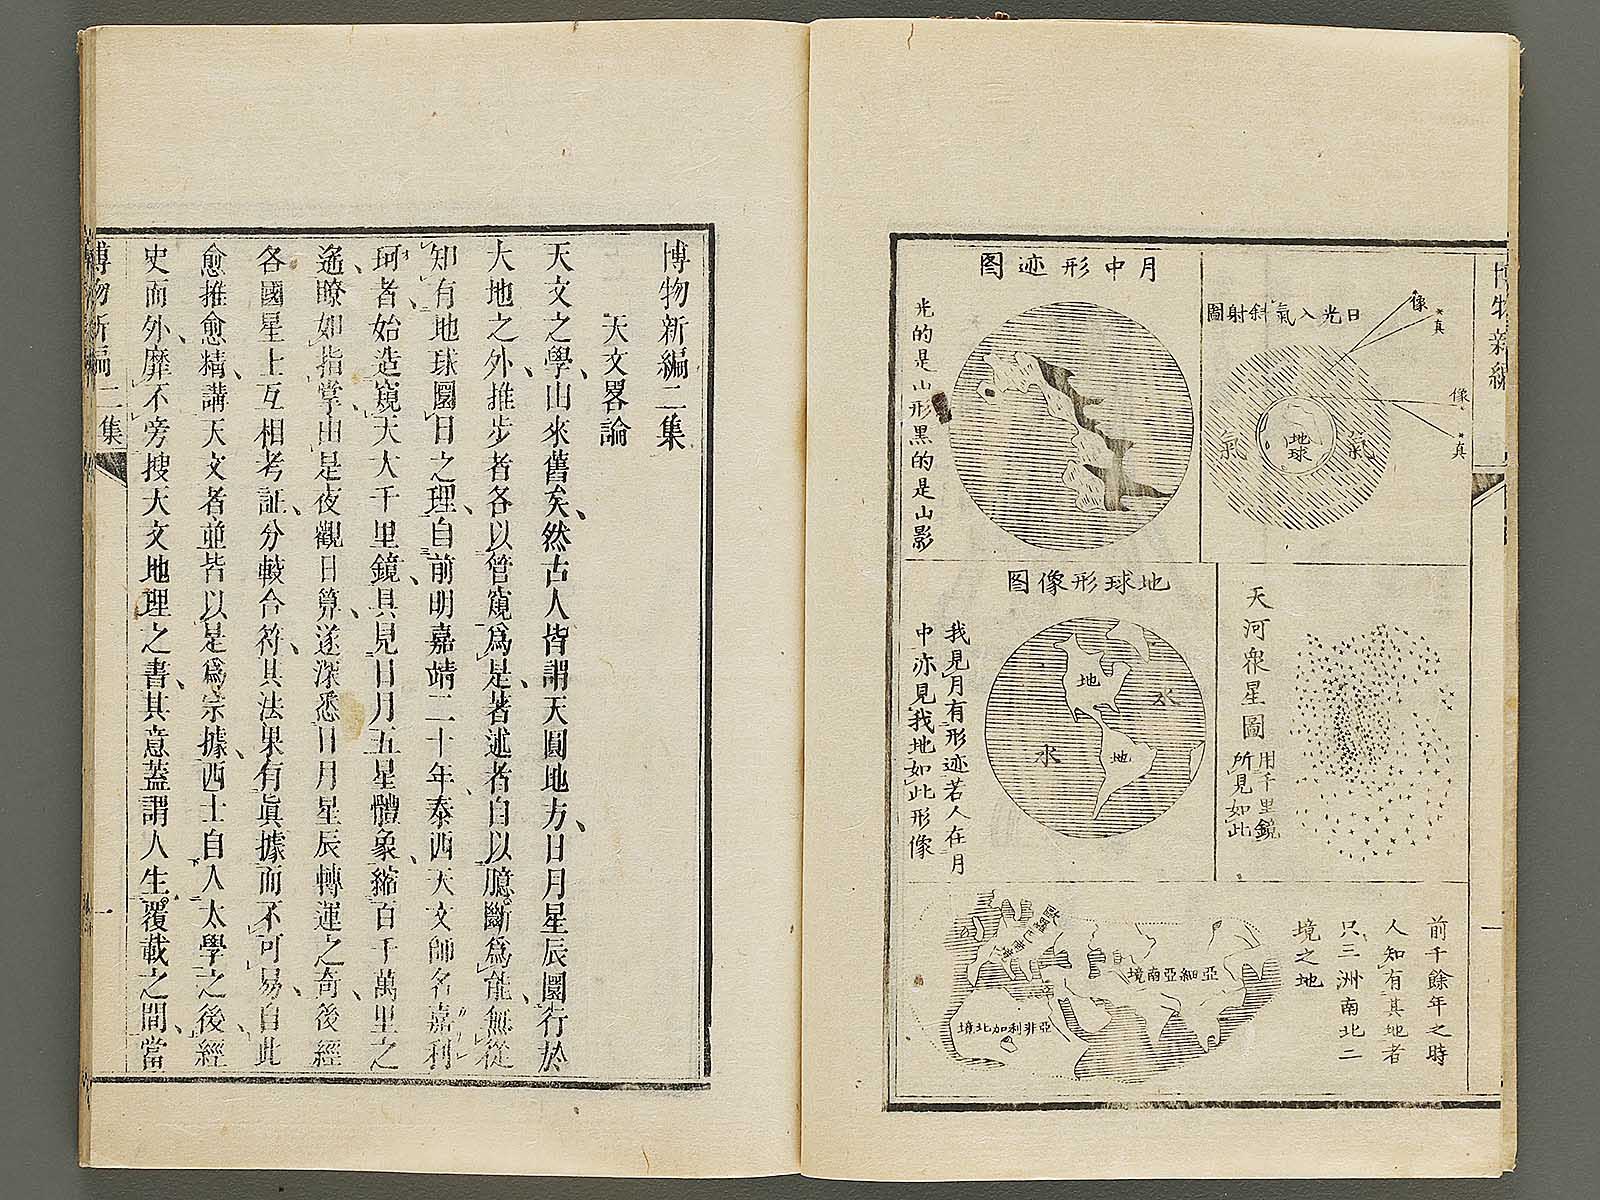 博物新編
日光入氣斜射圖
像
真
像
真
氣
地球
氣
月中形迹圖
光的是山形黑的是山影
天河衆星圖
用千里鏡
所見如此
地球形像圖
地
水
地
水
我見月有形迹若人在月
中亦見我地如此形像
前千餘年之時
人知有其地者
只三洲南北二
境之地
歐羅巴
亞細亞南境
亞非利加北境
一
博物新編二集
天文畧論
天文之學由來舊矣然古人皆謂天圓地方日月星辰圜行於
大地之外推步者各以管窺爲是著述者自以臆斷爲能無從
知有地球圜日之理自前明嘉靖二十年泰西天文師名嘉利
珂者始造窺天大千里鏡具見日月五星體象縮百千萬里之
遙瞭如指掌由是夜觀日算遂深悉日月星辰轉運之奇後經
各國星士互相考証分較合符其法果有眞據而不可易自此
愈推愈精講天文者並皆以是爲宗據西士自入太學之後經
史而外靡不旁搜天文地理之書其意蓋謂人生覆載之間當
博物新編二集
一